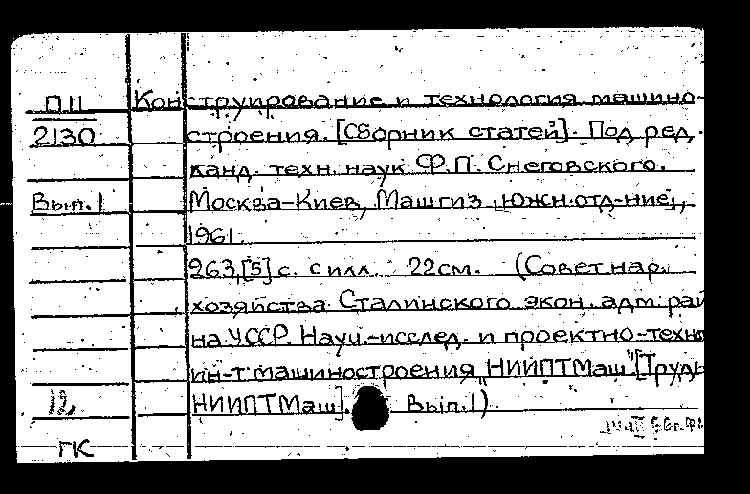 П11
2130
Вып.1
Конструирование и технология машино-
строения. [Сборник статей]. Под ред.
канд. техн. наук Ф.П. Снеговского.
Москва-Киев, Машгиз, [Южн. отд-ние],
1961.
263,[5] с. с илл. 22см. (Совет нар.
хозяйства Сталинского экон. адм. рай
на УССР. Науч.-исслед. и проектно-техно
ин-т машиностроения "НИИПТМаш" [Труды
НИИПТМаш]. Вып.1)
12
ГК